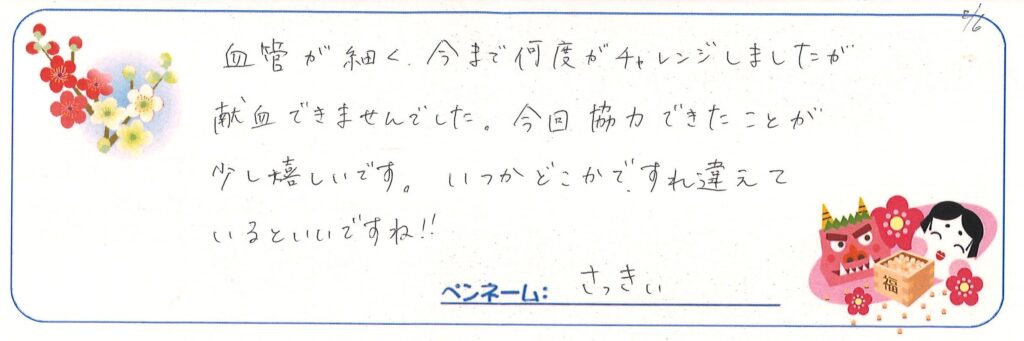 2/6
血管が細く、今まで何度がチャレンジしましたが
献血できませんでした。今回協力できたことが
少し嬉しいです。いつかどこかで、すれ違えて
いるといいですね!!
ペンネーム: さっきい
福